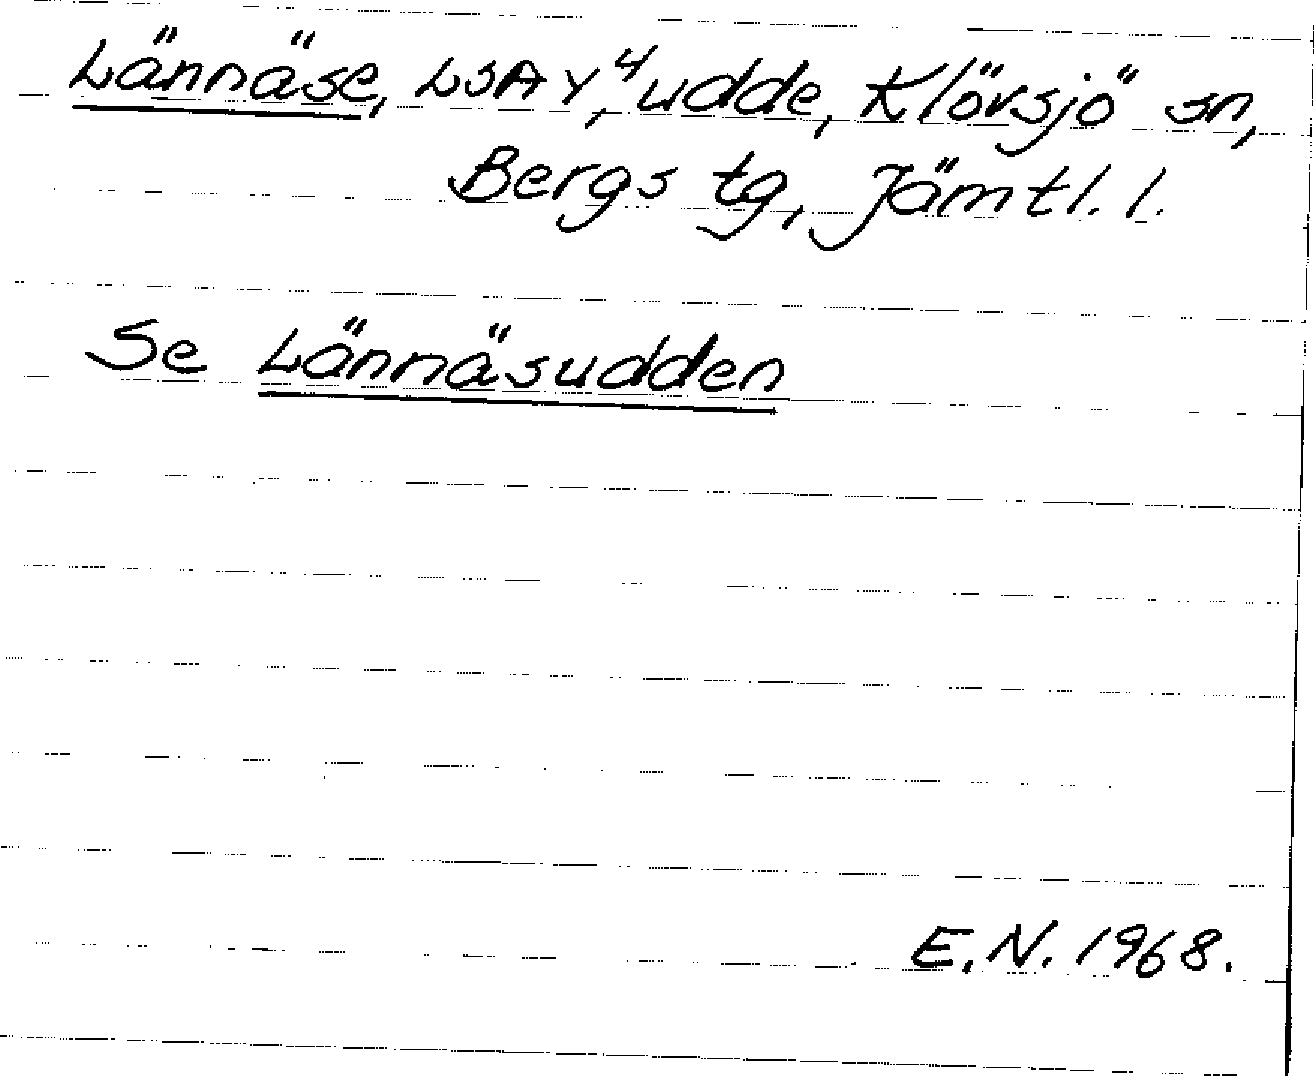 Lännäse, LSA Y,4 udde, Klövsjö sn,
Bergs tg, Jämtl. l.
Se Lännäsudden
E.N. 1968.